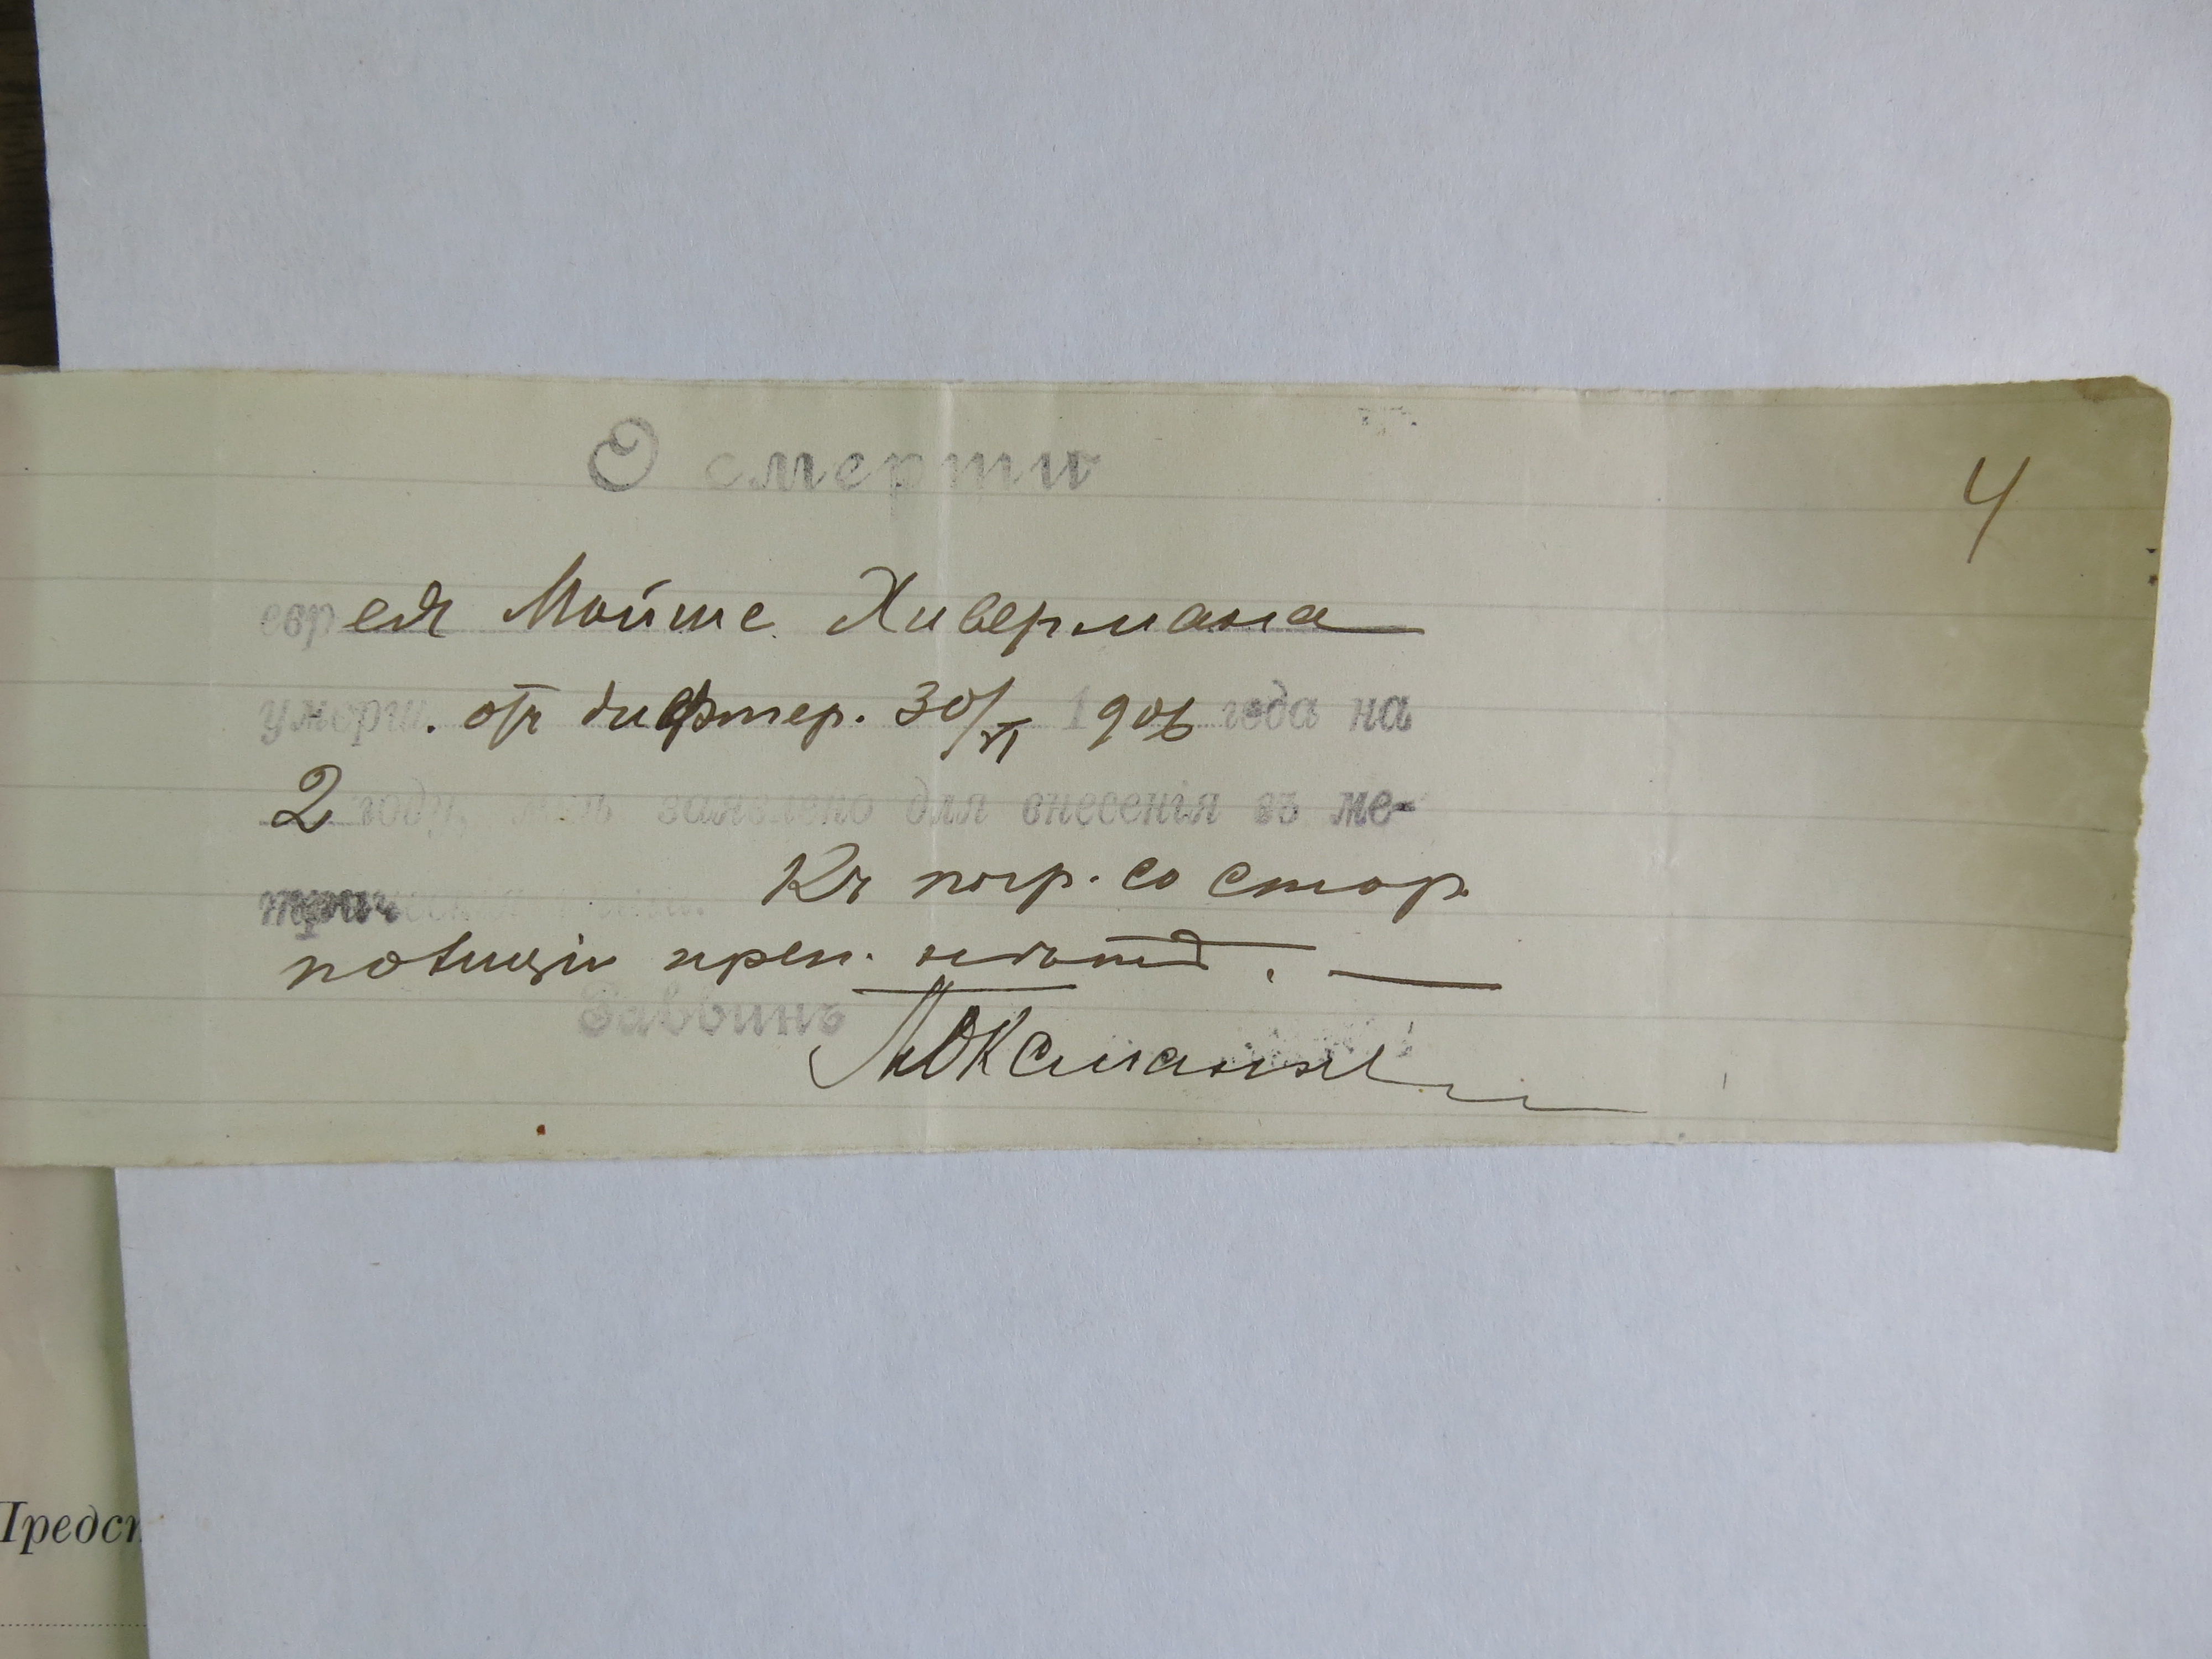 О смерти
4
еврея Мойше Хивермана
умерш. отъ дифтер. 30/VI 1906 года на
2 году, мнѣ заявлено для внесенія въ ме-
трическія книги. Къ погр. со стор.
полиціи преп. нѣтъ.
Раввинъ
Предст